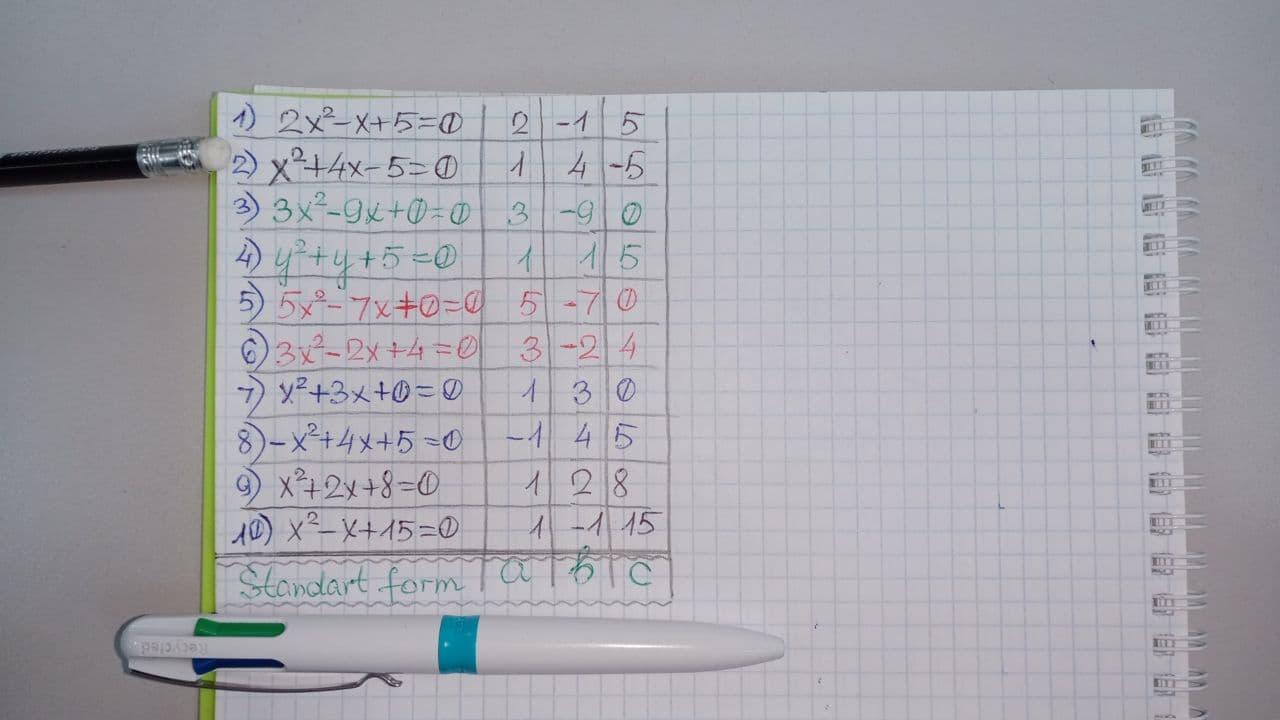 1) 2x²-x+5=0 2 -1 5
2) x²+4x-5=0 1 4 -5
3) 3x²-9x+0=0 3 -9 0
4) y²+y+5=0 1 1 5
5) 5x²-7x+0=0 5 -7 0
6) 3x²-2x+4=0 3 -2 4
7) x²+3x+0=0 1 3 0
8) -x²+4x+5=0 -1 4 5
9) x²+2x+8=0 1 2 8
10) x²-x+15=0 1 -1 15
Standart form a b c
Recycled